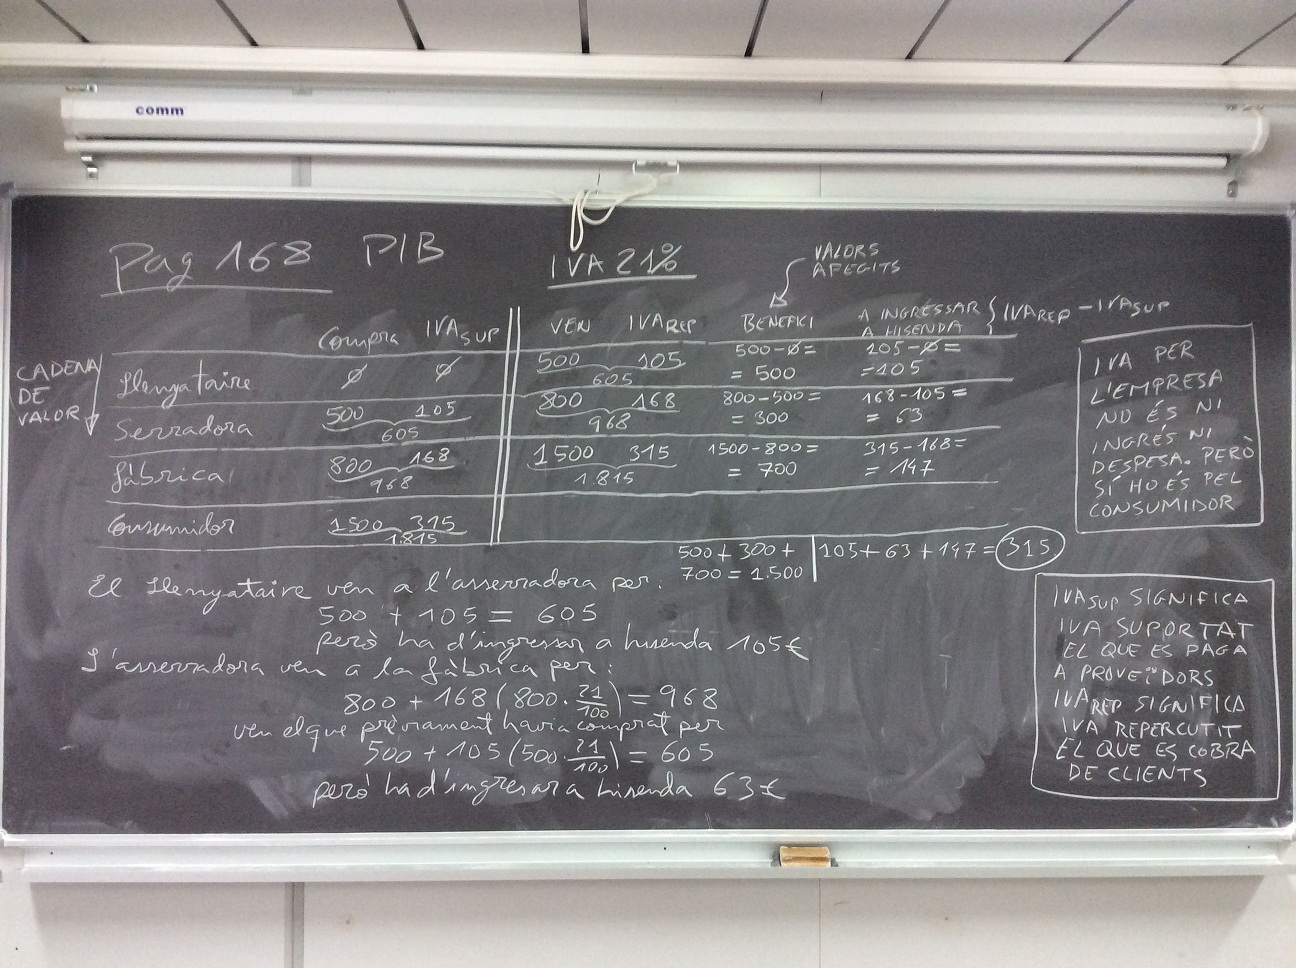 comm
Pag 168 PIB
IVA 21%
VALORS
AFEGITS
Compra IVA SUP VEN IVA REP BENEFICI A INGRESSAR
A HISENDA } IVA REP - IVA SUP
CADENA
DE
VALOR
Llenyataire ∅ ∅ 500 105 500-∅= 105-∅=
605 = 500 =105
Serradora 500 105 800 168 800-500= 168-105=
605 968 = 300 = 63
fàbrica 800 168 1500 315 1500-800= 315-168=
968 1.815 = 700 = 147
Consumidor 1500 315
1.815
500 + 300 + 105 + 63 + 147 = 315
700 = 1.500
IVA PER
L'EMPRESA
NO ÉS NI
INGRÉS NI
DESPESA. PERÒ
SÍ HO ÉS PEL
CONSUMIDOR
El Llenyataire ven a l'asserradora per:
500 + 105 = 605
però ha d'ingressar a hisenda 105€
L'asserradora ven a la fàbrica per:
800 + 168 (800 · 21/100) = 968
ven el que prèviament havia comprat per
500 + 105 (500 · 21/100) = 605
però ha d'ingresar a hisenda 63€
IVA SUP SIGNIFICA
IVA SUPORTAT
EL QUE ES PAGA
A PROVEÏDORS
IVA REP SIGNIFICA
IVA REPERCUTIT
EL QUE ES COBRA
DE CLIENTS